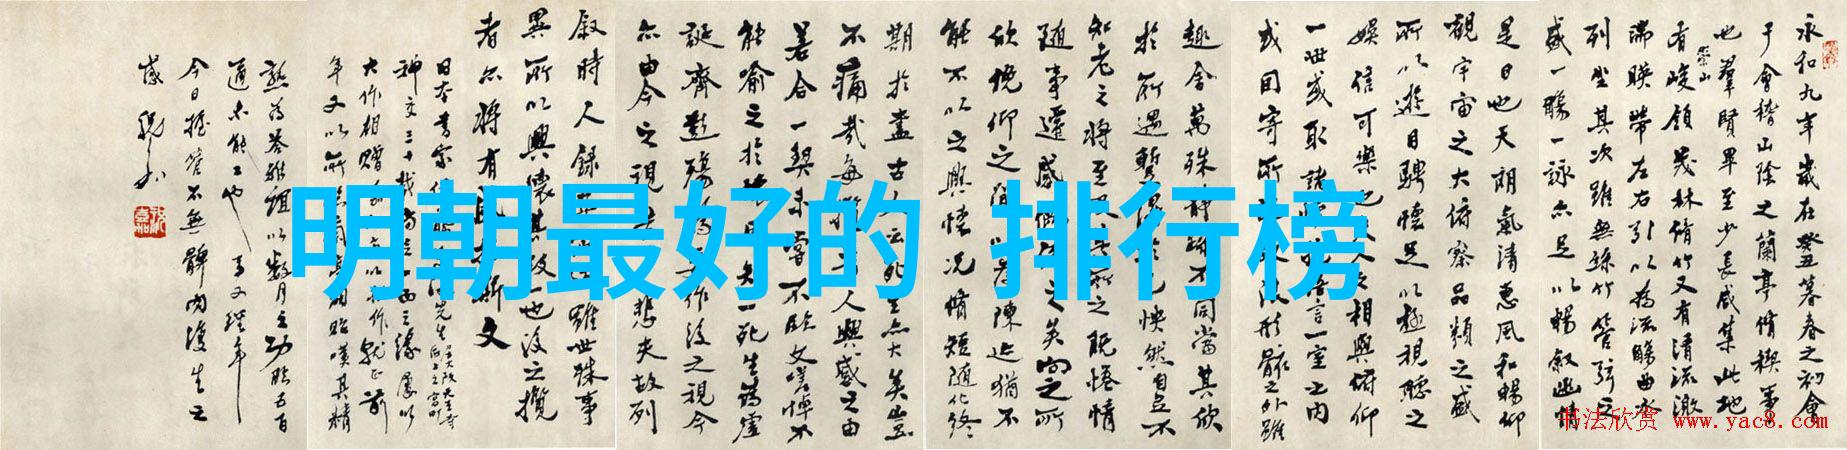 明朝最好的 排行榜
永和九年歲在癸丑暮春之初會
于會稽山陰之蘭亭脩稧事
也羣賢畢至少長咸集此地
有崇山峻領茂林脩竹又有清流激
湍暎帶左右引以為流觴曲水
列坐其次雖無絲竹管弦之
盛一觴一詠亦足以暢敘幽情
是日也天朗氣清惠風和暢仰
觀宇宙之大俯察品類之盛
所以遊目騁懷足以極視聽之
娛信可樂也夫人之相與俯仰
一世或取諸懷抱悟言一室之內
或因寄所託放浪形骸之外雖
趣舍萬殊靜躁不同當其欣
於所遇暫得於己快然自足不
知老之將至及其所之既惓情
隨事遷感慨係之矣向之所
欣俛仰之閒以為陳迹猶不
能不以之興懷況脩短隨化終
期於盡古人云死生亦大矣豈
不痛哉每攬昔人興感之由
若合一契未嘗不臨文嗟悼不
能喻之於懷固知一死生為虛
誕齊彭殤為妄作後之視今
亦由今之視昔悲夫故列
敘時人錄其所述雖世殊事
異所以興懷其致一也後之攬
者亦將有感於斯文
日本書家
神交三十載
大作相贈
年又以
今日握管不無
书法欣赏 www.yac8.com